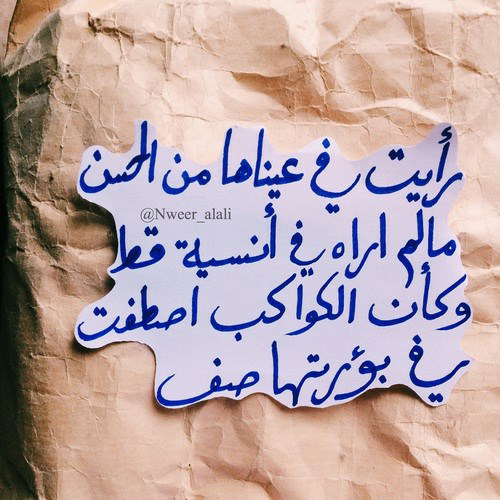 رأيت في عيناها من الحسن
@Nweer_alali
مالم اراه في أنسية قط
وكأن الكواكب اصطفت
في بؤرتها صف